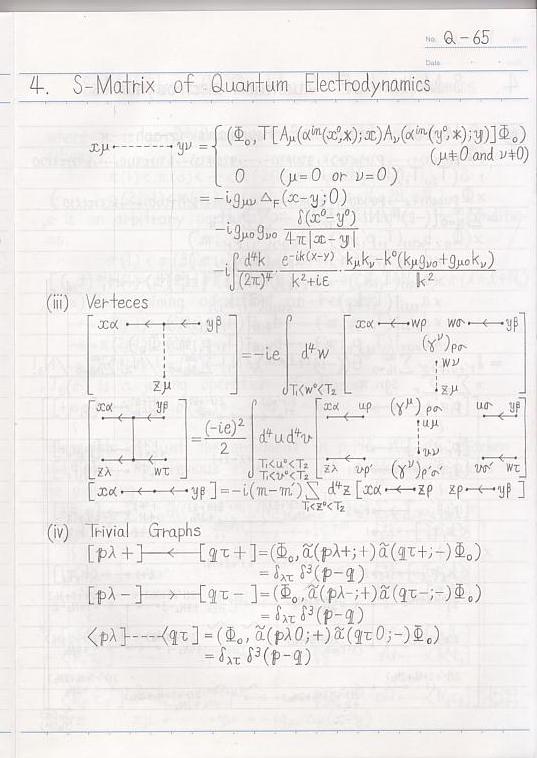 No. Q-65
Date
4. S-Matrix of Quantum Electrodynamics
xμ •-----------• yν = { (Φ₀, T[A_μ(α^in(x⁰,*);x)A_ν(α^in(y⁰,*);y)]Φ₀)
(μ≠0 and ν≠0)
0 (μ=0 or ν=0)
= -ig_μν Δ_F(x-y;0)
-ig_μ0 g_ν0 δ(x⁰-y⁰)/4π|x-y|
-i∫ d⁴k/(2π)⁴ · e^-ik(x-y)/k²+iε · k_μk_ν-k⁰(k_μg_ν0+g_μ0k_ν)/k²
(iii) Verteces
[ xα •←•←• yβ zμ ] = -ie ∫_{T₁<w⁰<T₂} d⁴w [ xα •←• wρ wσ •←• yβ (γ^ν)_ρσ wν zμ ]
[ xα yβ zλ wτ ] = (-ie)²/2 ∫_{T₁<u⁰<T₂ T₁<v⁰<T₂} d⁴u d⁴v [ xα uρ (γ^μ)_ρσ uσ yβ uμ vν zλ vρ' (γ^ν)_ρ'σ' vσ' wτ ]
[xα •←•←• yβ] = -i(m-m')∑_{T₁<z⁰<T₂} d⁴z [xα •←• zρ zρ •←• yβ]
(iv) Trivial Graphs
[pλ+]—←—[qτ+] = (Φ₀, ã(pλ+;+)ã(qτ+;-)Φ₀)
= δ_λτ δ³(p-q)
[pλ-]—→—[qτ-] = (Φ₀, ã(pλ-;+)ã(qτ-;-)Φ₀)
= δ_λτ δ³(p-q)
⟨pλ]----⟨qτ] = (Φ₀, ã(pλ0;+)ã(qτ0;-)Φ₀)
= δ_λτ δ³(p-q)